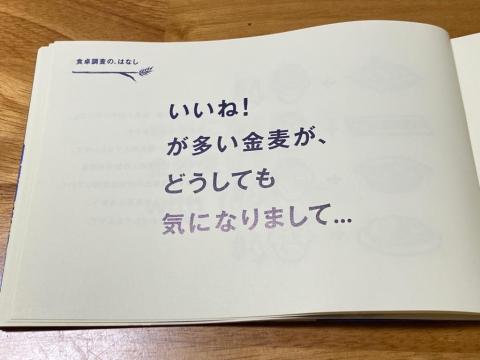 食卓調査の、はなし
いいね!
が多い金麦が、
どうしても
気になりまして…